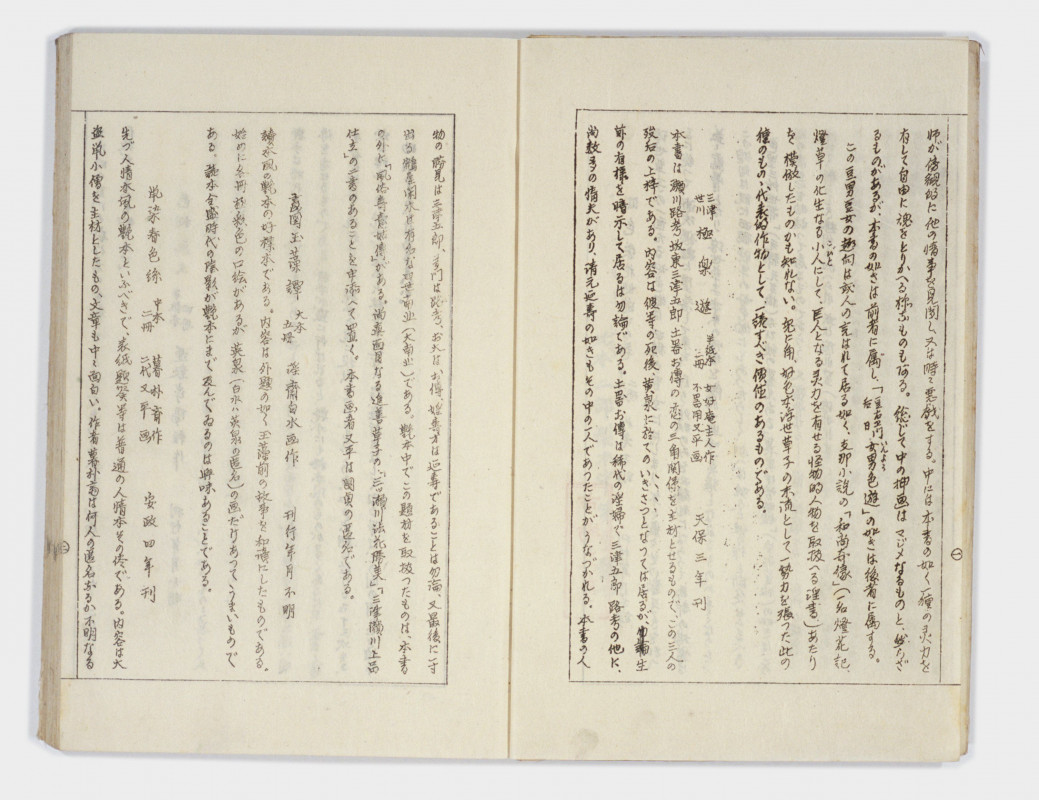 師が傍観的に他の情事を見聞し又は時々悪戯をする。中には本書の如く一種の灵力を
有して自由に魂をとりかへる様なものもある。総じて中の挿画はマジメなるものと、然らざ
るものがあるが、本書の如きは前者に属し、「豆右衛門後日女男色遊」の如きは後者に属する。
この豆男豆女の趣向は或人の言はれて居る如く、支那小説の「和尚奇縁」(一名燈花記、
燈草の化生なる小人にして、巨人となる灵力を有せる怪物的人物を取扱へる淫書)あたり
を模倣したものかも知れない。兎に角、好色本浮世草子の末流として一勢力を張った此の
種のもの、代表的作物として、読すべき價値のあるものである。
三津世川 極楽遊 半紙本三冊 女好菴主人作 不器用又平画 天保三年刊
本書は瀬川路考坂東三津五郎土器お傳の恋の三角関係を主材とせるもので、この三人の
歿后の上梓である。内容は彼等の死後、黄泉に於てのいきさつとなつては居るが、勿論生
前の有様を暗示して居るは勿論である。土器お傳は稀代の淫婦で三津五郎路考の他に、
尚数多の情夫があり、清元延寿の如きもその中の一人であつたことがうなづかれる。本書の人
物の時見は三津五郎、手門は路考、お大はお傳、媱寿才は延寿であることは勿論、又最後に一寸
出る鶴屋南北は有名な好世南北(大南北)である。艶本中でこの題材を取扱つたものは、本書
の外に「風俗寿喜好傳」がある。満章面目なる追善草子の、「三ッ瀬川法花勝美」「三津瀬川上品
仕立」の二書のあることを申添へて置く。本書画者又平は国貞の匿名である。
玉藻譚 大本五冊 淫斎白水画作 刊行年月不明
読本風の艶本の好標本である。内容は外題の如く玉藻前の故事を和譯にしたものである。
始めに各冊彩色の口絵があるが英泉(白水ハ英泉の匿名)の画だけあつてうまいもので
ある。読本全盛時代の陰影が艶本にまで及んでゐるのは興味あることである。
鼠染春色絲 中本二冊 暮朴斎作 二代又平画 安政四年刊
先づ人情本風の艶本といふべきで、表紙題簽等は普通の人情本その侭である。内容は大
盗鼠小僧を主材としたもの、文章も中々面白い。作者暮朴斎は何人の匿名なるか不明なる